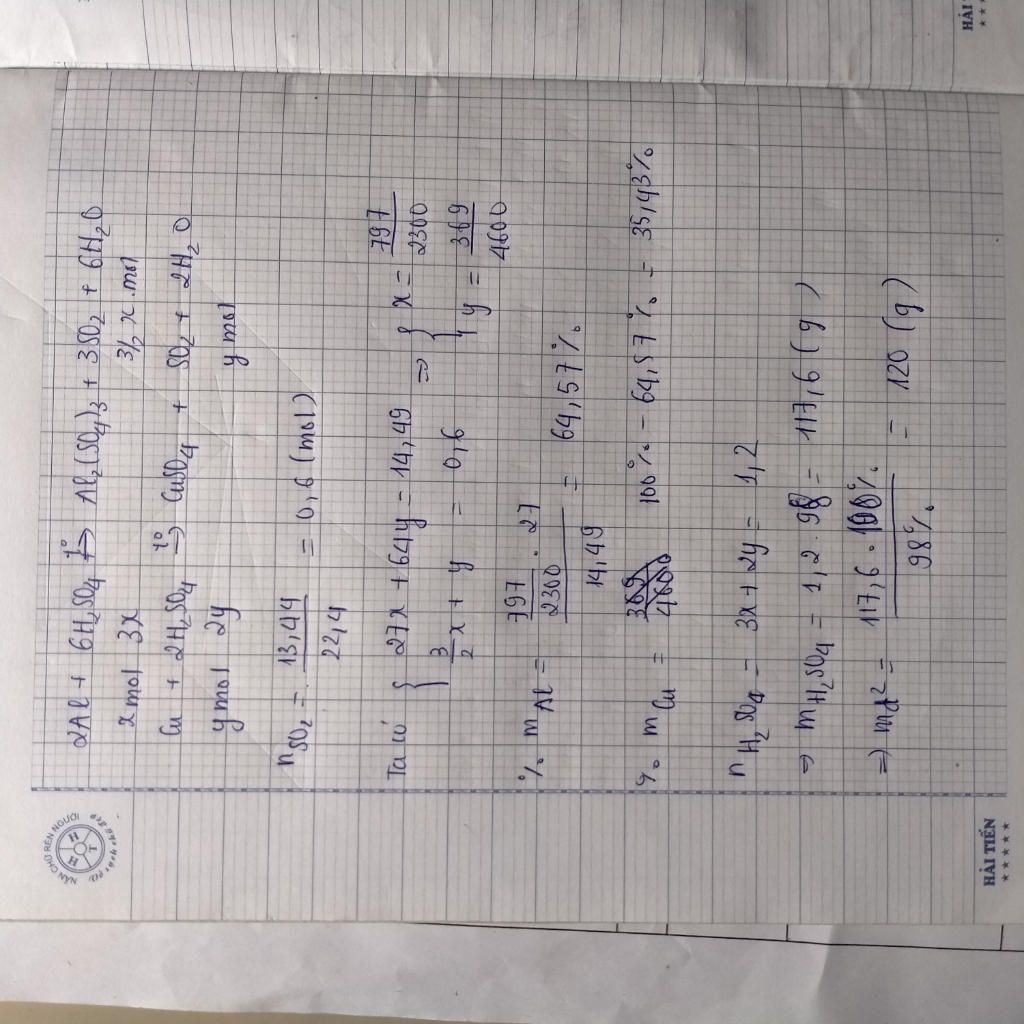 2Al + 6H₂SO₄ t° ⇒ Al₂(SO₄)₃ + 3SO₂ + 6H₂O
x mol 3x 3/2 x mol
Cu + 2H₂SO₄ t° ⇒ CuSO₄ + SO₂ + 2H₂O
y mol 2y y mol
nSO₂ = 13,44 / 22,4 = 0,6 (mol)
Ta có { 27x + 64y = 14,49 ⇒ { x = 797/2300
3/2 x + y = 0,6 y = 369/4600
% mAl = 797/2300 . 27 / 14,49 = 64,57%
% mCu = 100% - 64,57% = 35,43%
nH₂SO₄ = 3x + 2y = 1,2
⇒ mH₂SO₄ = 1,2 . 98 = 117,6 (g)
⇒ md² = 117,6 . 100% / 98% = 120 (g)
NẮN CHỮ RÈN NGƯỜI
HHT
HẢI TIẾN
★★★★★
HẢI